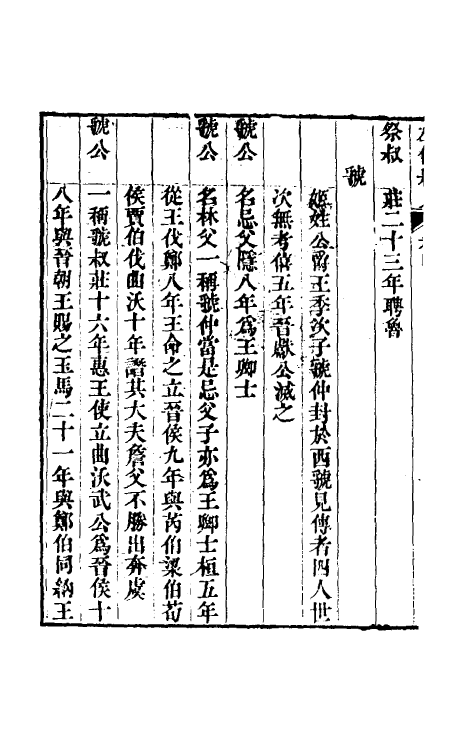 祭叔　莊二十三年聘魯
虢
姬姓公爵王季次子虢仲封於西虢見傳者四人世
次無考僖五年晉獻公滅之
虢公　名忌父隱八年爲王卿士
虢公　名林父一稱虢仲當是忌父子亦爲王卿士桓五年
從王伐鄭八年王命之立晉侯九年與芮伯梁伯荀
侯賈伯伐曲沃十年譖其大夫詹父不勝出奔虞
虢公　一稱虢叔莊十六年惠王使立曲沃武公爲晉侯十
八年與晉朝王賜之玉馬二十一年與鄭伯同納王